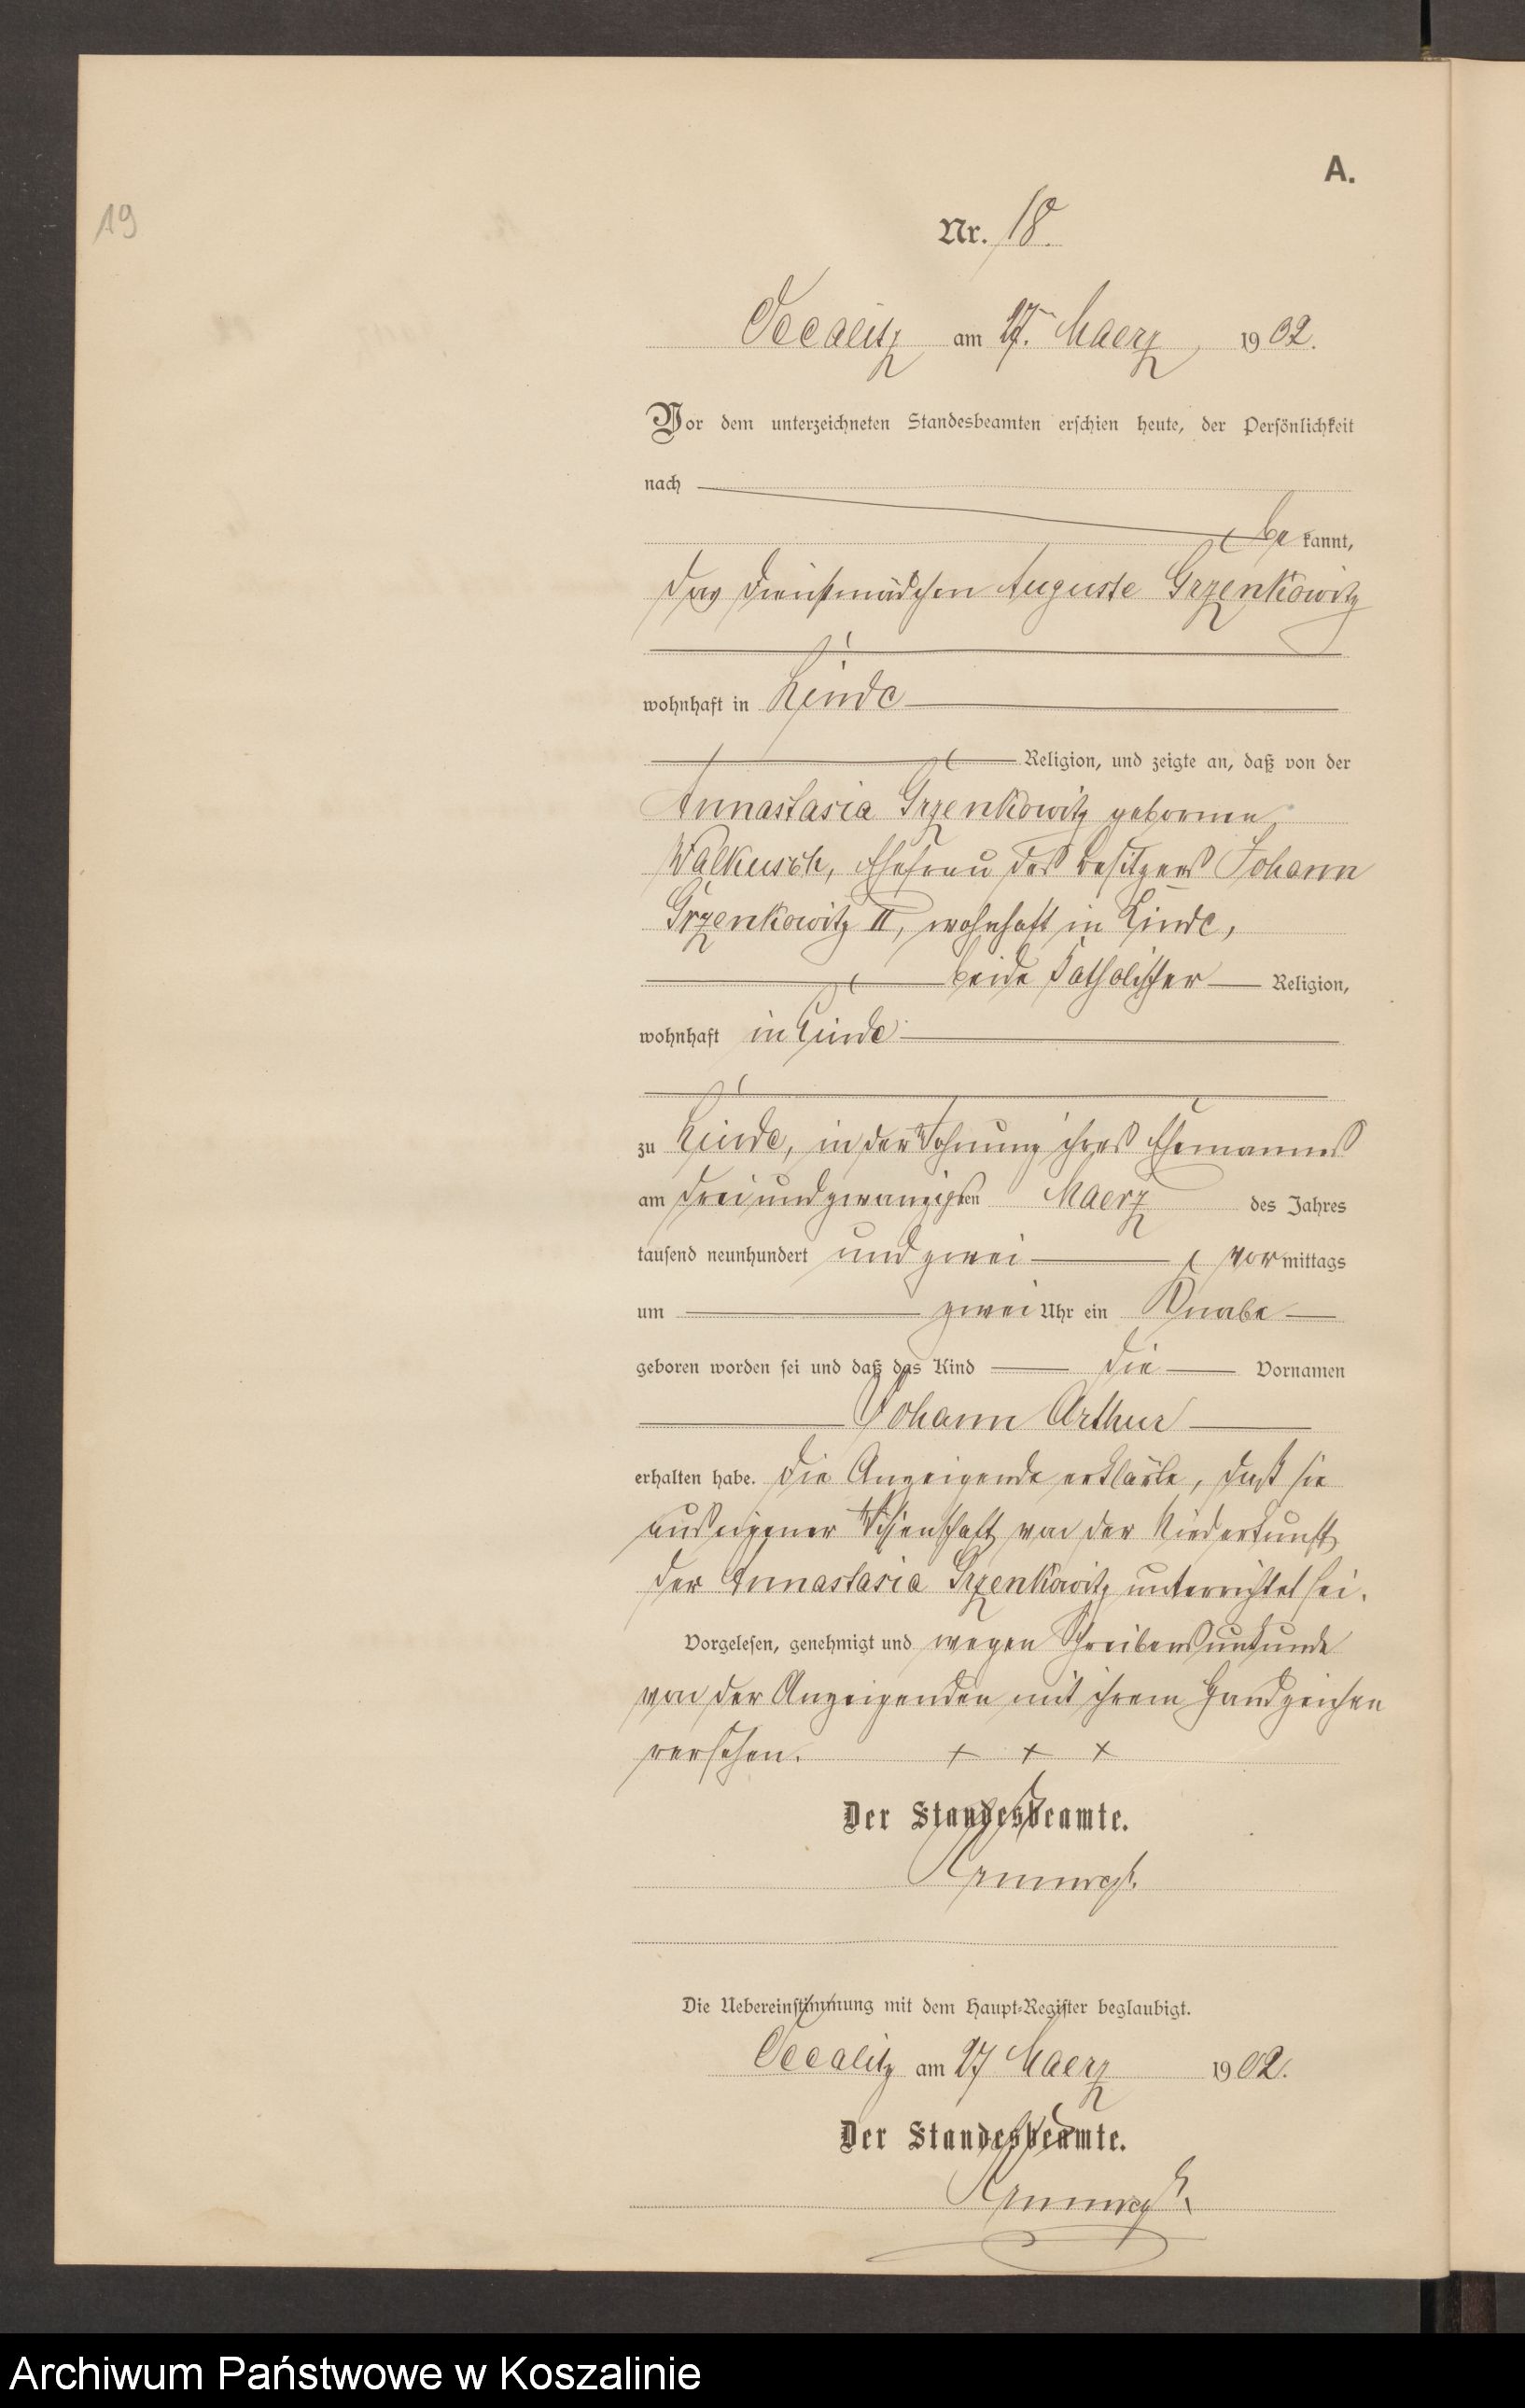 A.
19
Nr. 18.
Occalitz am 27. Maerz 1902.
Vor dem unterzeichneten Standesbeamten erschien heute, der Persönlichkeit
nach
be kannt,
das Dienstmädchen Auguste Grzenkowitz
wohnhaft in Linde
Religion, und zeigte an, daß von der
Annastasia Grzenkowitz geborenen
Walkusch, Ehefrau des Besitzers Johann
Grzenkowitz II, wohnhaft in Linde,
beide katholischer Religion,
wohnhaft in Linde
zu Linde, in der Wohnung ihres Ehemannes
am dreiundzwanzigsten Maerz des Jahres
tausend neunhundert und zwei vor mittags
um zwei Uhr ein Knabe
geboren worden sei und daß das Kind die Vornamen
Johann Arthur
erhalten habe. Die Anzeigende erklärte, daß sie
aus eigener Wissenschaft von der Niederkunft
der Annastasia Grzenkowitz unterrichtet sei.
Vorgelesen, genehmigt und wegen Schreibensunkunde
von der Anzeigenden mit ihrem Handzeichen
versehen. + + +
Der Standesbeamte.
Die Uebereinstimmung mit dem Haupt-Register beglaubigt.
Occalitz am 27 Maerz 1902.
Der Standesbeamte.
Archiwum Państwowe w Koszalinie